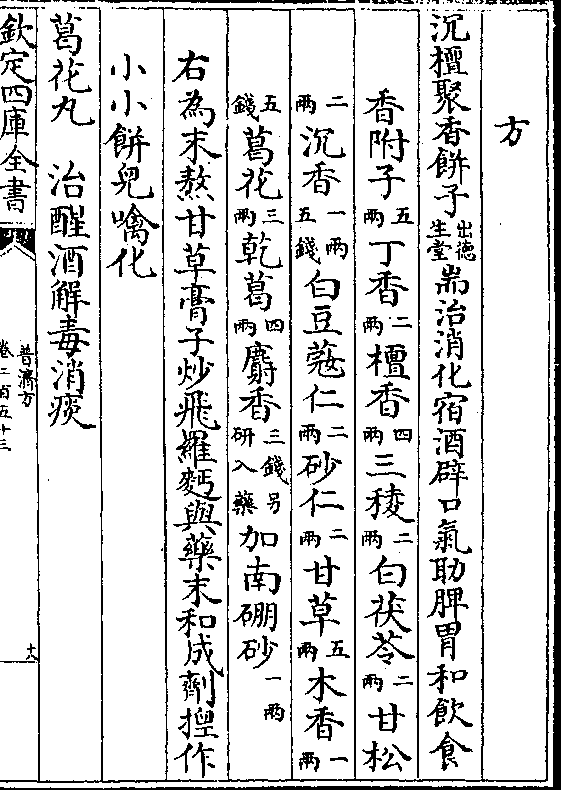 方
沉檀聚香餅子出徳生堂耑治消化宿酒辟口氣助脾胃和飲食
香附子五兩丁香二兩檀香四兩三稜二兩白茯苓二兩甘松
二兩沉香一兩五錢白豆蔲仁二兩砂仁二兩甘草五兩木香一兩
五錢葛花三兩乾葛四兩麝香三錢另研入藥加南硼砂一兩
右為末熬甘草膏子炒飛羅麪與藥末和成劑揑作
小小餅兒噙化
葛花丸　治醒酒解毒消痰
欽定四庫全書
普濟方
卷二百五十三
十六